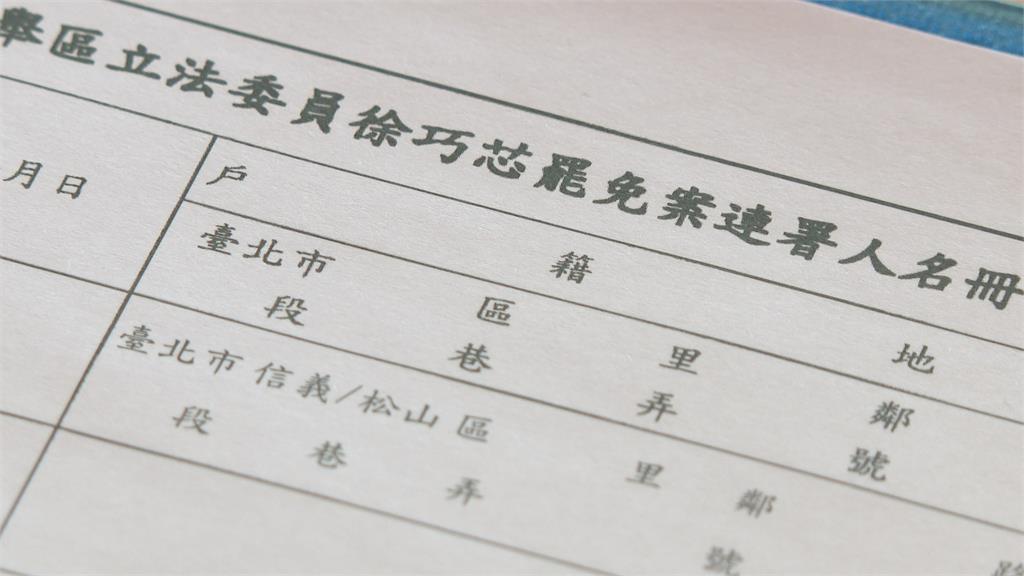 舉區立法委員徐巧芯罷免案連署人名冊
月日
戶 籍 地
臺北市 區 里 鄰
段 巷 弄 號
臺北市 信義/松山 區 里 鄰 路
段 巷 弄 號